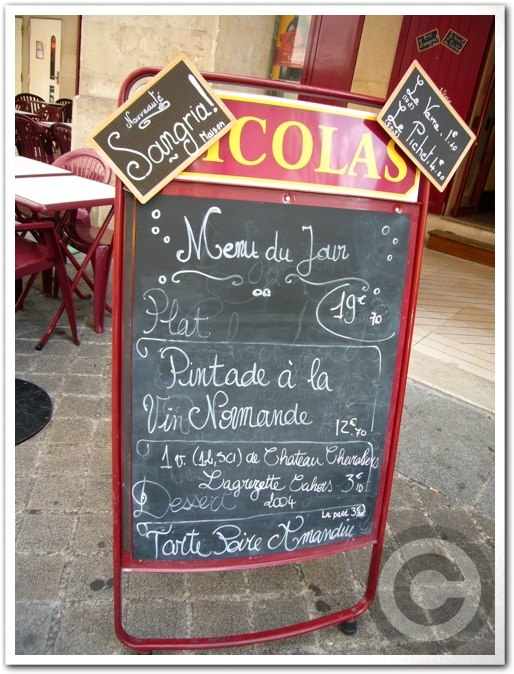 Nouveauté
Sangria!
~ Maison
NICOLAS
Le Verre
Le Pichet.
Menu du Jour
19€70
Plat
Pintade à la
Vin Normande
12€70
1 v. (12,5cl) de Chateau Chevaliers
Lagrezette Cahors 3€10
Dessert 2004
La part
Tarte Poire Amandine
©